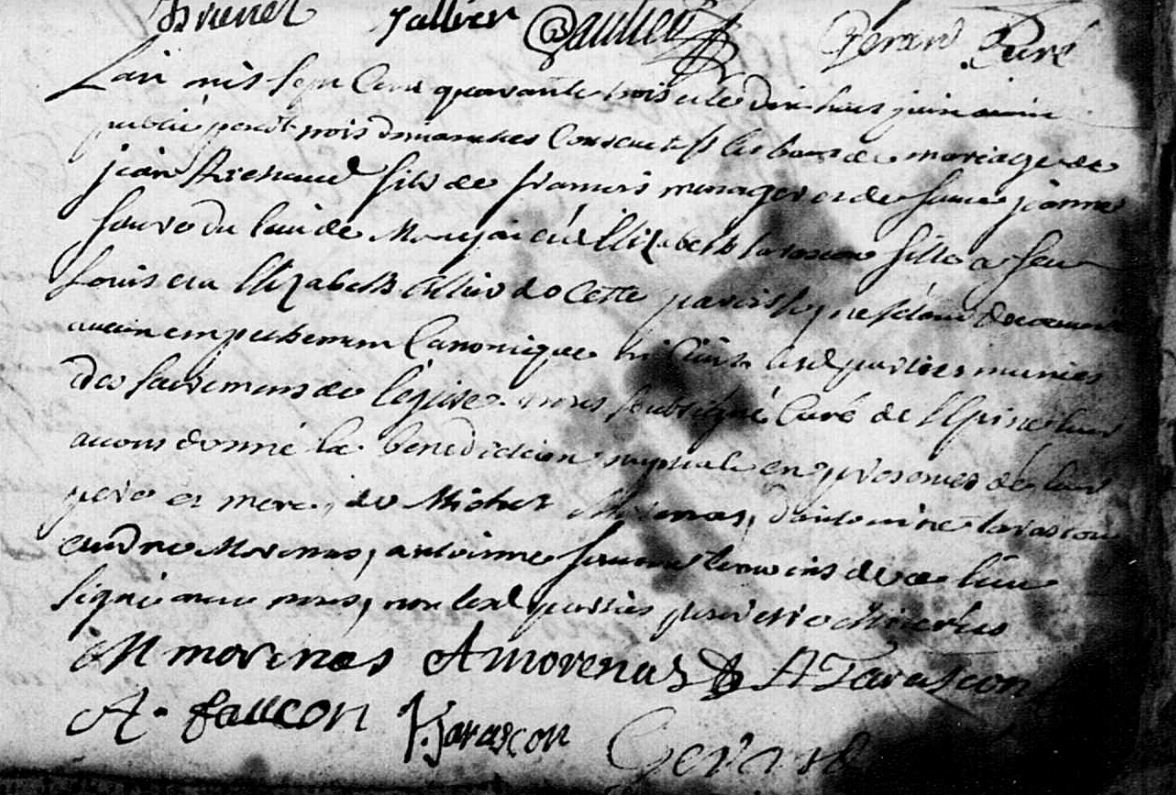 Brunet Tallier Gaultier Gerard Curé
Lan mil sept Cent quarante trois et le dix huit juin aiant
publié pendt trois dimanches Consecutifs les bans de mariage de
jean Arenaud fils de francois menager et de feue jeanne
faure du lieu de et Elizabeth tarascon fille a feu
Louis et a Elizabeth de Cette paroisse, ne sétant decouvert
aucun empechement Canonique ni Civil lesd parties munies
des sacremens de légise nous soubsigné Curé de lepine leur
avons donné la benediction nuptiale en presences de leur
pere et mere, de Michel Morenas, dantoine tarascon
andre Morenas, antoinne faucon temoins de ce lieu
signé avec nous, non lesd parties pour etre illiterées
M morenas A Morenas A Tarascon
A. faucon Tarascon Gerard